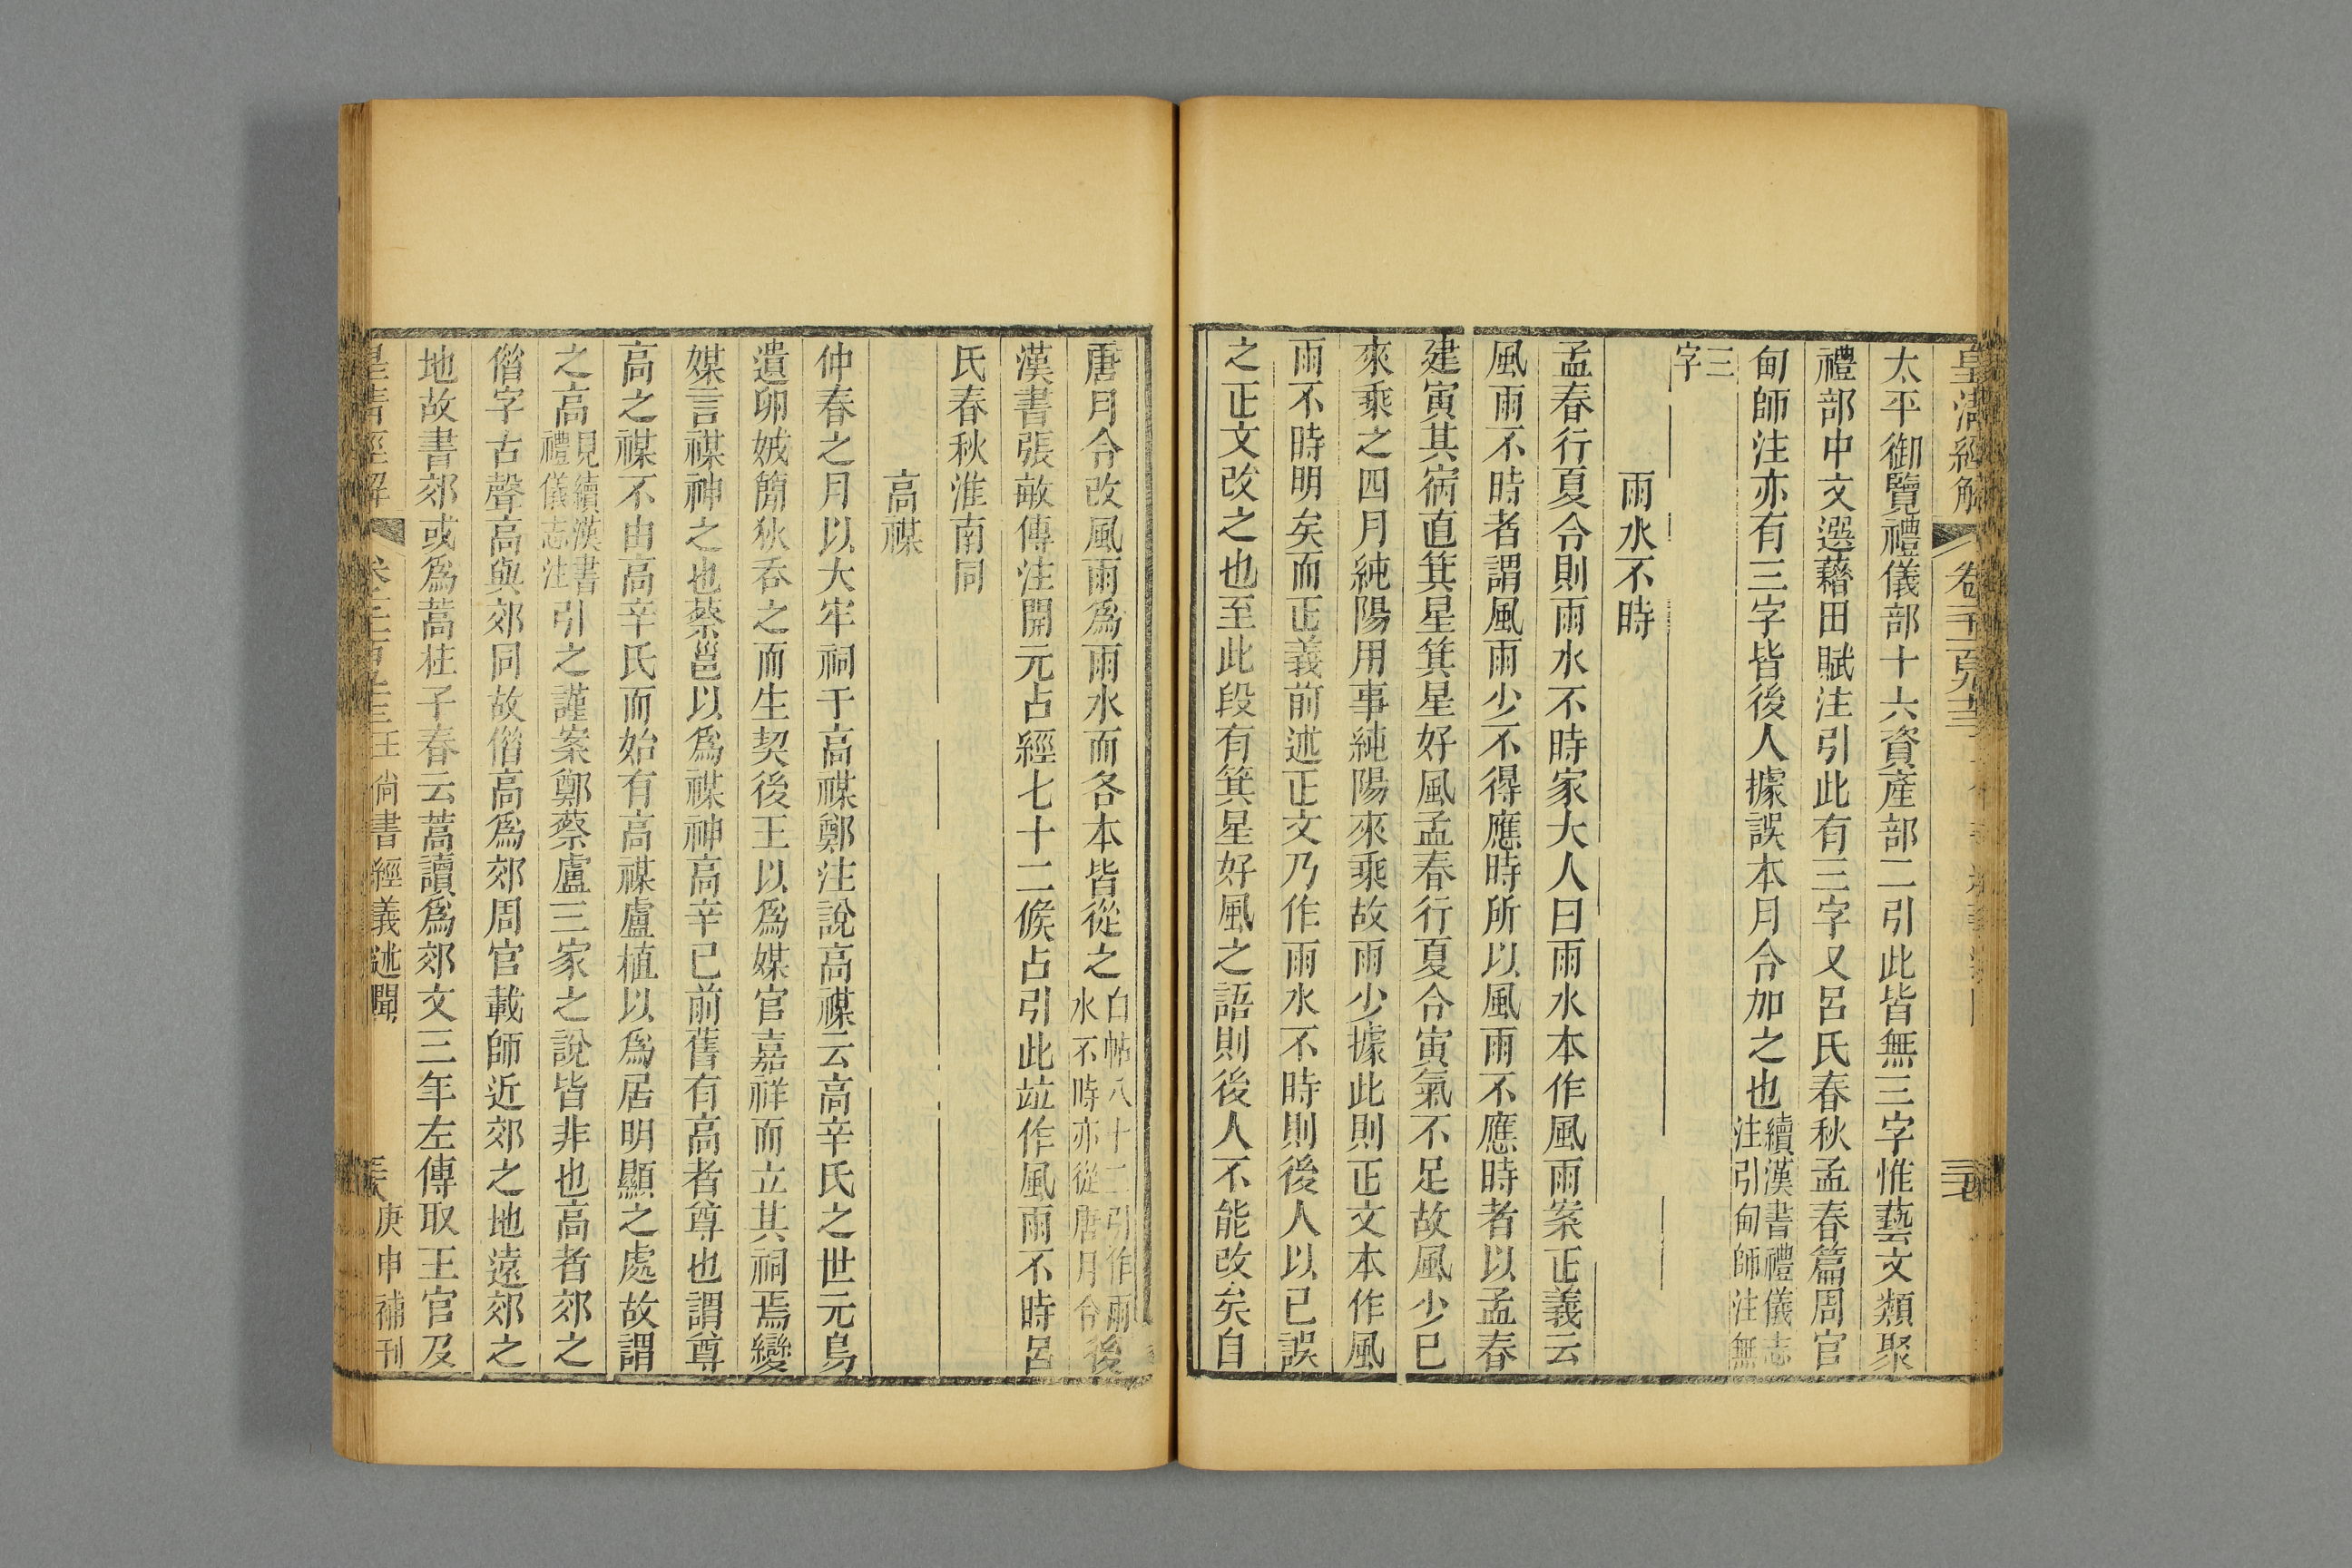 皇清經解
太平御覽禮儀部十六資產部二引此皆無三字惟藝文類聚
禮部中文選藉田賦注引此有三字又呂氏春秋孟春篇周官
甸師注亦有三字皆後人據誤本月令加之也續漢書禮儀志注引甸師注無
三字
雨水不時
孟春行夏令則雨水不時家大人曰雨水本作風雨案正義云
風雨不時者謂風雨少不得應時所以風雨不應時者以孟春
建寅其宿直箕星箕星好風孟春行夏令寅氣不足故風少已
來乘之四月純陽用事純陽來乘故雨少據此則正文本作風
雨不時明矣而正義前述正文乃作雨水不時則後人以已誤
之正文改之也至此段有箕星好風之語則後人不能改矣自
唐月令改風雨爲雨水而各本皆從之白帖八十二引作雨水不時亦從唐月令後
漢書張敏傳注開元占經七十二候占引此竝作風雨不時呂
氏春秋淮南同
高禖
仲春之月以大牢祠于高禖鄭注說高禖云高辛氏之世元鳥
遺卵娀簡狄吞之而生契後王以爲媒官嘉祥而立其祠焉變
媒言禖神之也蔡邕以爲禖神高辛已前舊有高者尊也謂尊
高之禖不由高辛氏而始有高禖盧植以爲居明顯之處故謂
之高見續漢書禮儀志注引之謹案鄭蔡盧三家之說皆非也高者郊之
借字古聲高與郊同故借高爲郊周官載師近郊之地遠郊之
地故書郊或爲蒿杜子春云蒿讀爲郊文三年左傳取王官及
皇清經解 尚書經義述聞 庚申補刊